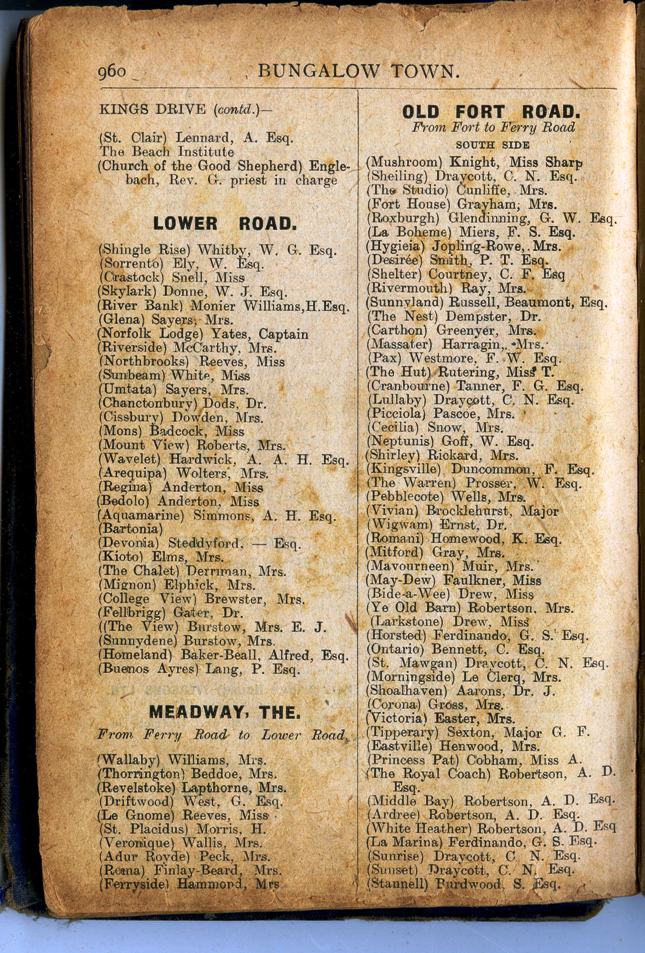 960
BUNGALOW TOWN.
KINGS DRIVE (contd.)—
(St. Clair) Lennard, A. Esq.
The Beach Institute
(Church of the Good Shepherd) Engle-
bach, Rev. G. priest in charge
LOWER ROAD.
(Shingle Rise) Whitby, W. G. Esq.
(Sorrento) Ely, W. Esq.
(Crastock) Snell, Miss
(Skylark) Donne, W. J. Esq.
(River Bank) Monier Williams,H.Esq.
(Glena) Sayers, Mrs.
(Norfolk Lodge) Yates, Captain
(Riverside) McCarthy, Mrs.
(Northbrooks) Reeves, Miss
(Sunbeam) White, Miss
(Umtata) Sayers, Mrs.
(Chanctonbury) Dods, Dr.
(Cissbury) Dowden, Mrs.
(Mons) Badcock, Miss
(Mount View) Roberts, Mrs.
(Wavelet) Hardwick, A. A. H. Esq.
(Arequipa) Wolters, Mrs.
(Regina) Anderton, Miss
(Bedolo) Anderton, Miss
(Aquamarine) Simmons, A. H. Esq.
(Bartonia)
(Devonia) Steddyford, — Esq.
(Kioto) Elms, Mrs.
(The Chalet) Derriman, Mrs.
(Mignon) Elphick, Mrs.
(College View) Brewster, Mrs.
(Fellbrigg) Gater, Dr.
((The View) Burstow, Mrs. E. J.
(Sunnydene) Burstow, Mrs.
(Homeland) Baker-Beall, Alfred, Esq.
(Buenos Ayres) Lang, P. Esq.
MEADWAY, THE.
From Ferry Road to Lower Road.
(Wallaby) Williams, Mrs.
(Thorrington) Beddoe, Mrs.
(Revelstoke) Lapthorne, Mrs.
(Driftwood) West, G. Esq.
(Le Gnome) Reeves, Miss
(St. Placidus) Morris, H.
(Veronique) Wallis, Mrs.
(Adur Royde) Peck, Mrs.
(Roma) Finlay-Beard, Mrs.
(Ferryside) Hammond, Mrs
OLD FORT ROAD.
From Fort to Ferry Road
SOUTH SIDE
(Mushroom) Knight, Miss Sharp
(Sheiling) Draycott, C. N. Esq.
(The Studio) Cunliffe, Mrs.
(Fort House) Grayham, Mrs.
(Roxburgh) Glendinning, G. W. Esq.
(La Boheme) Miers, F. S. Esq.
(Hygieia) Jopling-Rowe, Mrs.
(Desirée) Smith, P. T. Esq.
(Shelter) Courtney, C. F. Esq
(Rivermouth) Ray, Mrs.
(Sunnyland) Russell, Beaumont, Esq.
(The Nest) Dempster, Dr.
(Carthon) Greenyer, Mrs.
(Massater) Harragin, Mrs.
(Pax) Westmore, F. W. Esq.
(The Hut) Rutering, Miss T.
(Cranbourne) Tanner, F. G. Esq.
(Lullaby) Draycott, C. N. Esq.
(Picciola) Pascoe, Mrs.
(Cecilia) Snow, Mrs.
(Neptunis) Goff, W. Esq.
(Shirley) Rickard, Mrs.
(Kingsville) Duncommon, F. Esq.
(The Warren) Prosser, W. Esq.
(Pebblecote) Wells, Mrs.
(Vivian) Brocklehurst, Major
(Wigwam) Ernst, Dr.
(Romani) Homewood, K. Esq.
(Mitford) Gray, Mrs.
(Mavourneen) Muir, Mrs.
(May-Dew) Faulkner, Miss
(Bide-a-Wee) Drew, Miss
(Ye Old Barn) Robertson, Mrs.
(Larkstone) Drew, Miss
(Horsted) Ferdinando, G. S. Esq.
(Ontario) Bennett, C. Esq.
(St. Mawgan) Draycott, C. N. Esq.
(Morningside) Le Clerq, Mrs.
(Shoalhaven) Aarons, Dr. J.
(Corona) Gross, Mrs.
(Victoria) Easter, Mrs.
(Tipperary) Sexton, Major G. F.
(Eastville) Henwood, Mrs.
(Princess Pat) Cobham, Miss A.
(The Royal Coach) Robertson, A. D.
Esq.
(Middle Bay) Robertson, A. D. Esq.
(Ardree) Robertson, A. D. Esq.
(White Heather) Robertson, A. D. Esq
(La Marina) Ferdinando, G. S. Esq.
(Sunrise) Draycott, C. N. Esq.
(Sunset) Draycott, C. N. Esq.
(Stannell) Burdwood, S. Esq.